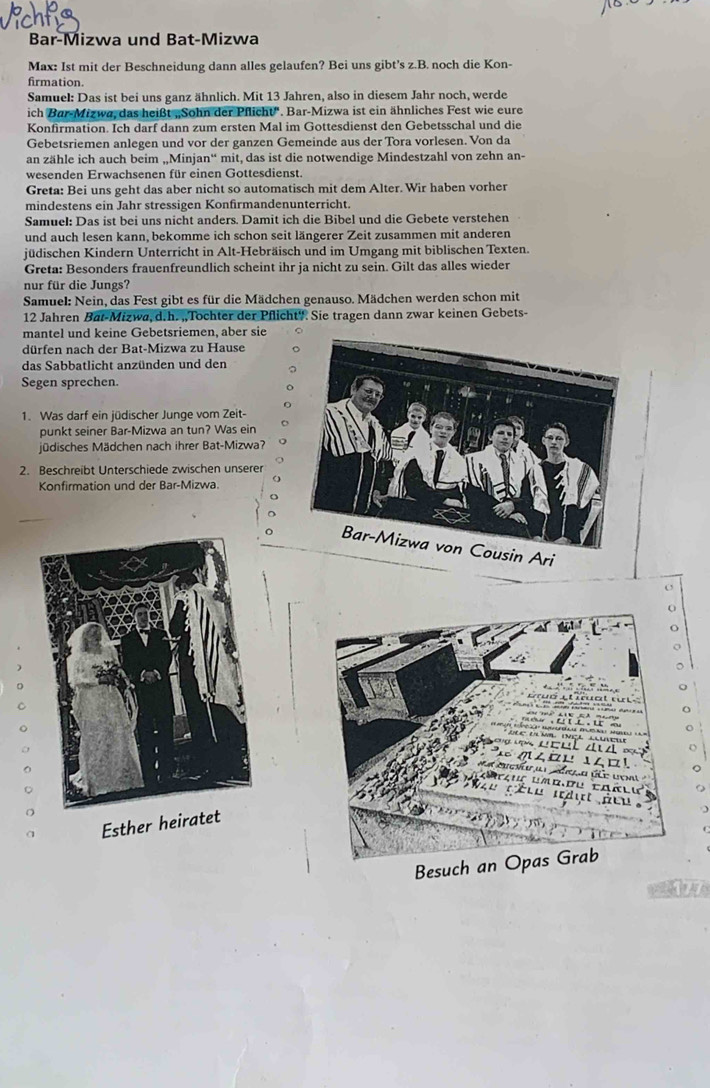 Wichtig
Bar-Mizwa und Bat-Mizwa
Max: Ist mit der Beschneidung dann alles gelaufen? Bei uns gibt's z.B. noch die Kon-
firmation.
Samuel: Das ist bei uns ganz ähnlich. Mit 13 Jahren, also in diesem Jahr noch, werde
ich Bar-Mizwa, das heißt „Sohn der Pflicht". Bar-Mizwa ist ein ähnliches Fest wie eure
Konfirmation. Ich darf dann zum ersten Mal im Gottesdienst den Gebetsschal und die
Gebetsriemen anlegen und vor der ganzen Gemeinde aus der Tora vorlesen. Von da
an zähle ich auch beim „Minjan“ mit, das ist die notwendige Mindestzahl von zehn an-
wesenden Erwachsenen für einen Gottesdienst.
Greta: Bei uns geht das aber nicht so automatisch mit dem Alter. Wir haben vorher
mindestens ein Jahr stressigen Konfirmandenunterricht.
Samuel: Das ist bei uns nicht anders. Damit ich die Bibel und die Gebete verstehen
und auch lesen kann, bekomme ich schon seit längerer Zeit zusammen mit anderen
jüdischen Kindern Unterricht in Alt-Hebräisch und im Umgang mit biblischen Texten.
Greta: Besonders frauenfreundlich scheint ihr ja nicht zu sein. Gilt das alles wieder
nur für die Jungs?
Samuel: Nein, das Fest gibt es für die Mädchen genauso. Mädchen werden schon mit
12 Jahren Bat-Mizwa, d.h. „Tochter der Pflicht“. Sie tragen dann zwar keinen Gebets-
mantel und keine Gebetsriemen, aber sie
dürfen nach der Bat-Mizwa zu Hause
das Sabbatlicht anzünden und den
Segen sprechen.
1. Was darf ein jüdischer Junge vom Zeit-
punkt seiner Bar-Mizwa an tun? Was ein
jüdisches Mädchen nach ihrer Bat-Mizwa?
2. Beschreibt Unterschiede zwischen unserer
Konfirmation und der Bar-Mizwa.
Bar-Mizwa von Cousin Ari
Esther heiratet
Besuch an Opas Grab